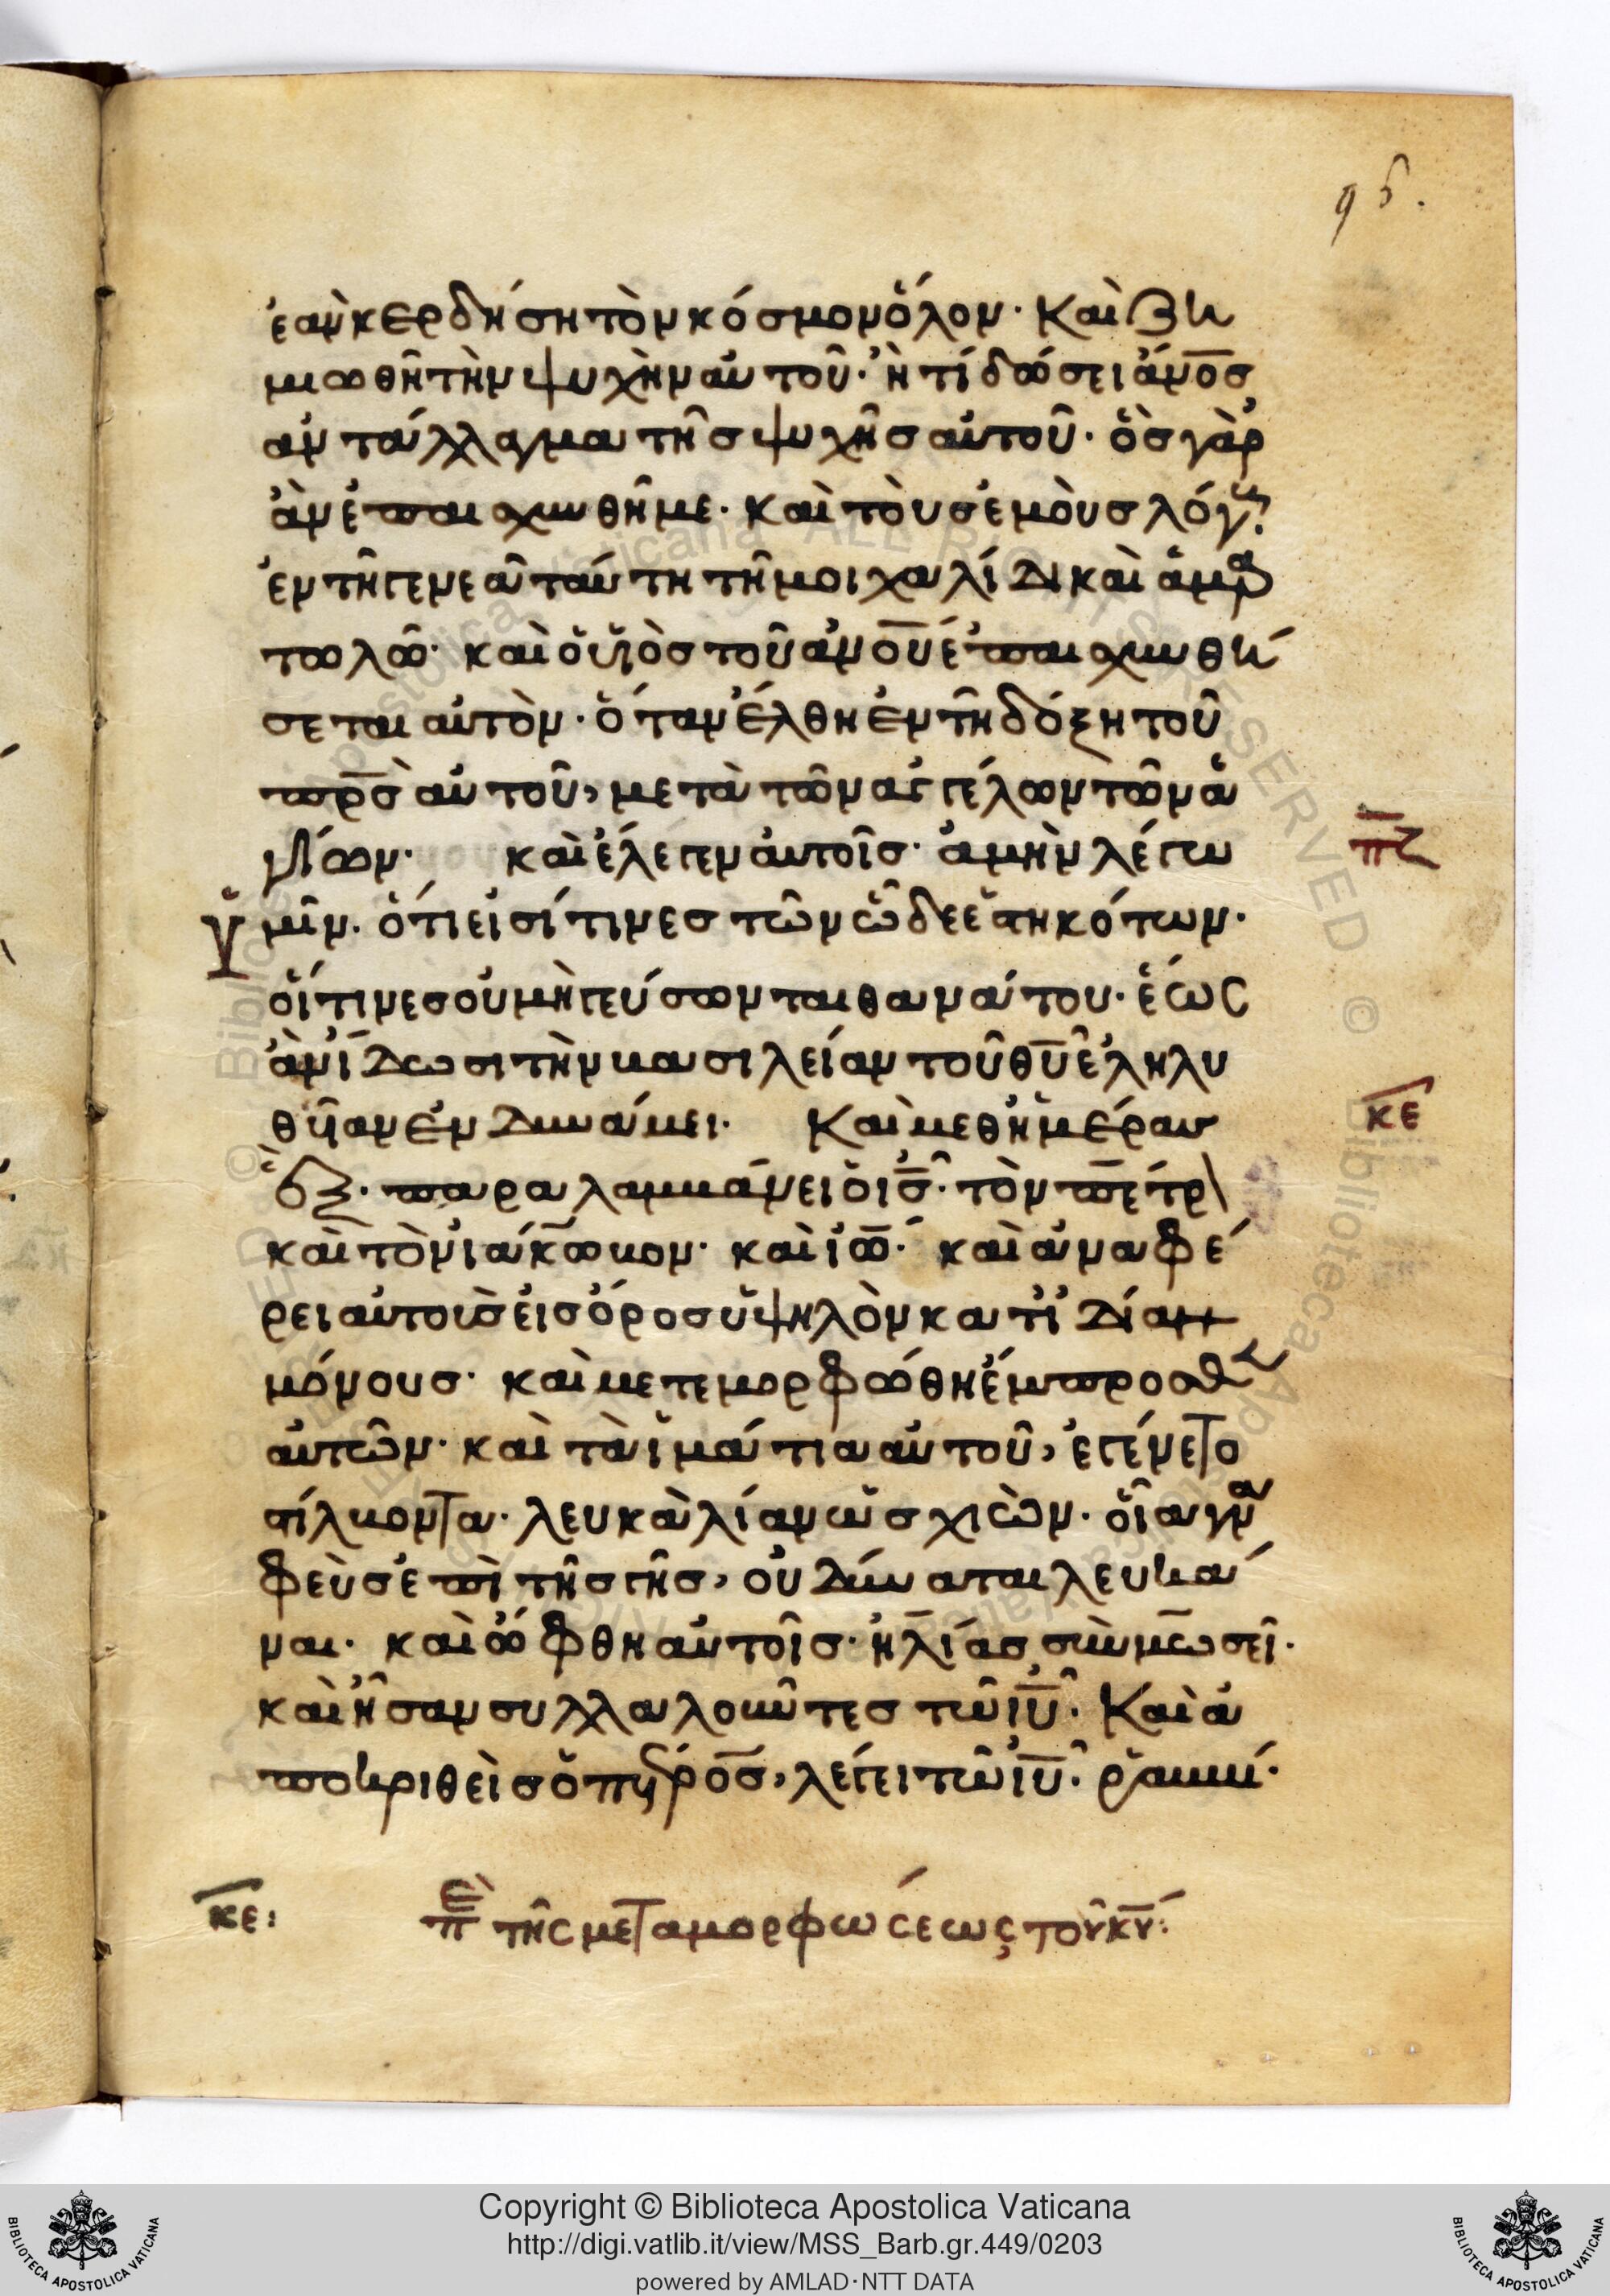 95.
ἐὰν κερδήση τὸν κόσμον ὅλον· Καὶ ζη
μιωθῆ τὴν ψυχὴν αὐτοῦ· ἢ τί δώσει ἄν̅ο̅σ
ἀντάλλαγμα τῆσ ψυχῆσ αὐτοῦ· ὃσ γὰρ
ἂν ἐπαισχυνθῆ με· καὶ τοὺσ ἐμοὺσ λόγουσ
ἐν τῆ γενεᾶ ταύτη τῆ μοιχαλίδι καὶ ἁμαρ
τωλῶ· καὶ ὁ υἱὸσ τοῦ ἀν̅ο̅υ̅ ἐπαισχυνθή
σεται αὐτὸν· ὅταν ἔλθη ἐν τῆ δόξη τοῦ
π̅ρ̅σ̅ αὐτοῦ, μετὰ τῶν ἀγγέλων τῶν ἁ
γίων· καὶ ἔλεγεν αὐτοῖσ· ἀμὴν λέγω
π̅ζ̅
ὑμῖν· ὅτι εἰσί τινεσ τῶν ὧδε ἑστηκότων·
οἵτινεσ οὐ μὴ γεύσωνται θανάτου· ἕωσ
ἂν ἴδωσι τὴν βασιλείαν τοῦ θ̅υ̅ ἐληλυ
θυῖαν ἐν δυνάμει· Καὶ μεθ ἡμέρασ
κ̅ε̅
ἓξ· παραλαμβάνει ὁ ι̅σ̅· τὸν πέτρ
καὶ τὸν ιάκωβον· καὶ ἰω̅· καὶ ἀναφέ
ρει αὐτοὺσ εἰσ ὄροσ ὑψηλὸν κατ ἰδίαν
μόνουσ· καὶ μετεμορφώθη ἔμπροσθεν
αὐτῶν· καὶ τὰ ἱμάτια αὐτοῦ, ἐγένετο
στίλβοντα· λευκὰ λίαν ὡσ χιὼν· οἷα γνα
φεὺσ ἐπὶ τῆσ γῆσ, οὐ δύναται λευκᾶ
ναι· καὶ ὤφθη αὐτοῖσ· ἠλίασ σὺν μωσεῖ·
καὶ ἦσαν συλλαλοῦντεσ τῶ ι̅υ̅· Καὶ ἀ
ποκριθεὶσ ὁ πέτροσ, λέγει τῶ ι̅υ̅· ῥαββί·
κ̅ε̅:
πε τῆς μεταμορφώσεως τοῦ κ̅υ̅:
Copyright © Biblioteca Apostolica Vaticana
http://digi.vatlib.it/view/MSS_Barb.gr.449/0203
powered by AMLAD·NTT DATA
BIBLIOTECA APOSTOLICA VATICANA
BIBLIOTECA APOSTOLICA VATICANA